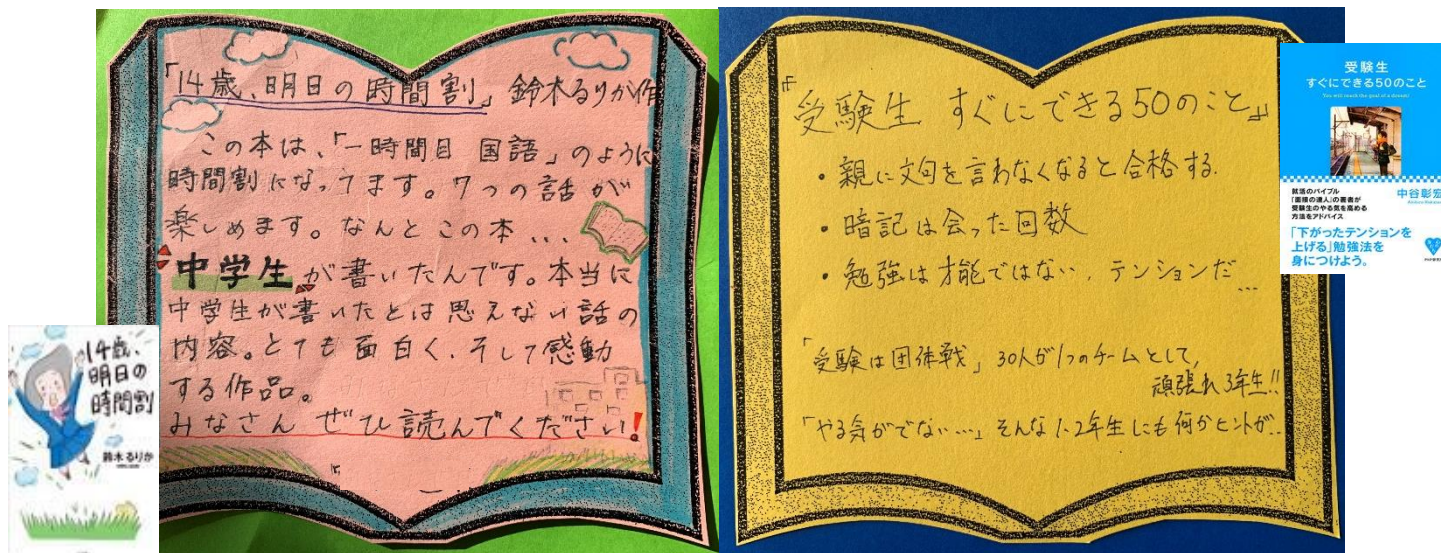 「14歳、明日の時間割」 鈴木るりか作
この本は、「一時間目 国語」のように
時間割になってます。7つの話が
楽しめます。なんとこの本...
中学生が書いたんです。本当に
中学生が書いたとは思えない話の
内容。とても面白く、そして感動
する作品。
みなさん ぜひ読んでください!
14歳、
明日の
時間割
鈴木るりか
『受験生 すぐにできる50のこと』
・親に文句を言わなくなると合格する.
・暗記は会った回数
・勉強は才能ではない、テンションだ...
「受験は団体戦」 30人が1つのチームとして,
頑張れ3年生!!
「やる気がでない…」そんな1.2年生にも何かヒントが...
受験生
すぐにできる50のこと
You will reach the goal of a dream!
就活のバイブル
「面接の達人」の著者が
受験生のやる気を高める
方法をアドバイス
中谷彰宏
「下がったテンションを
上げる」勉強法を
身につけよう。